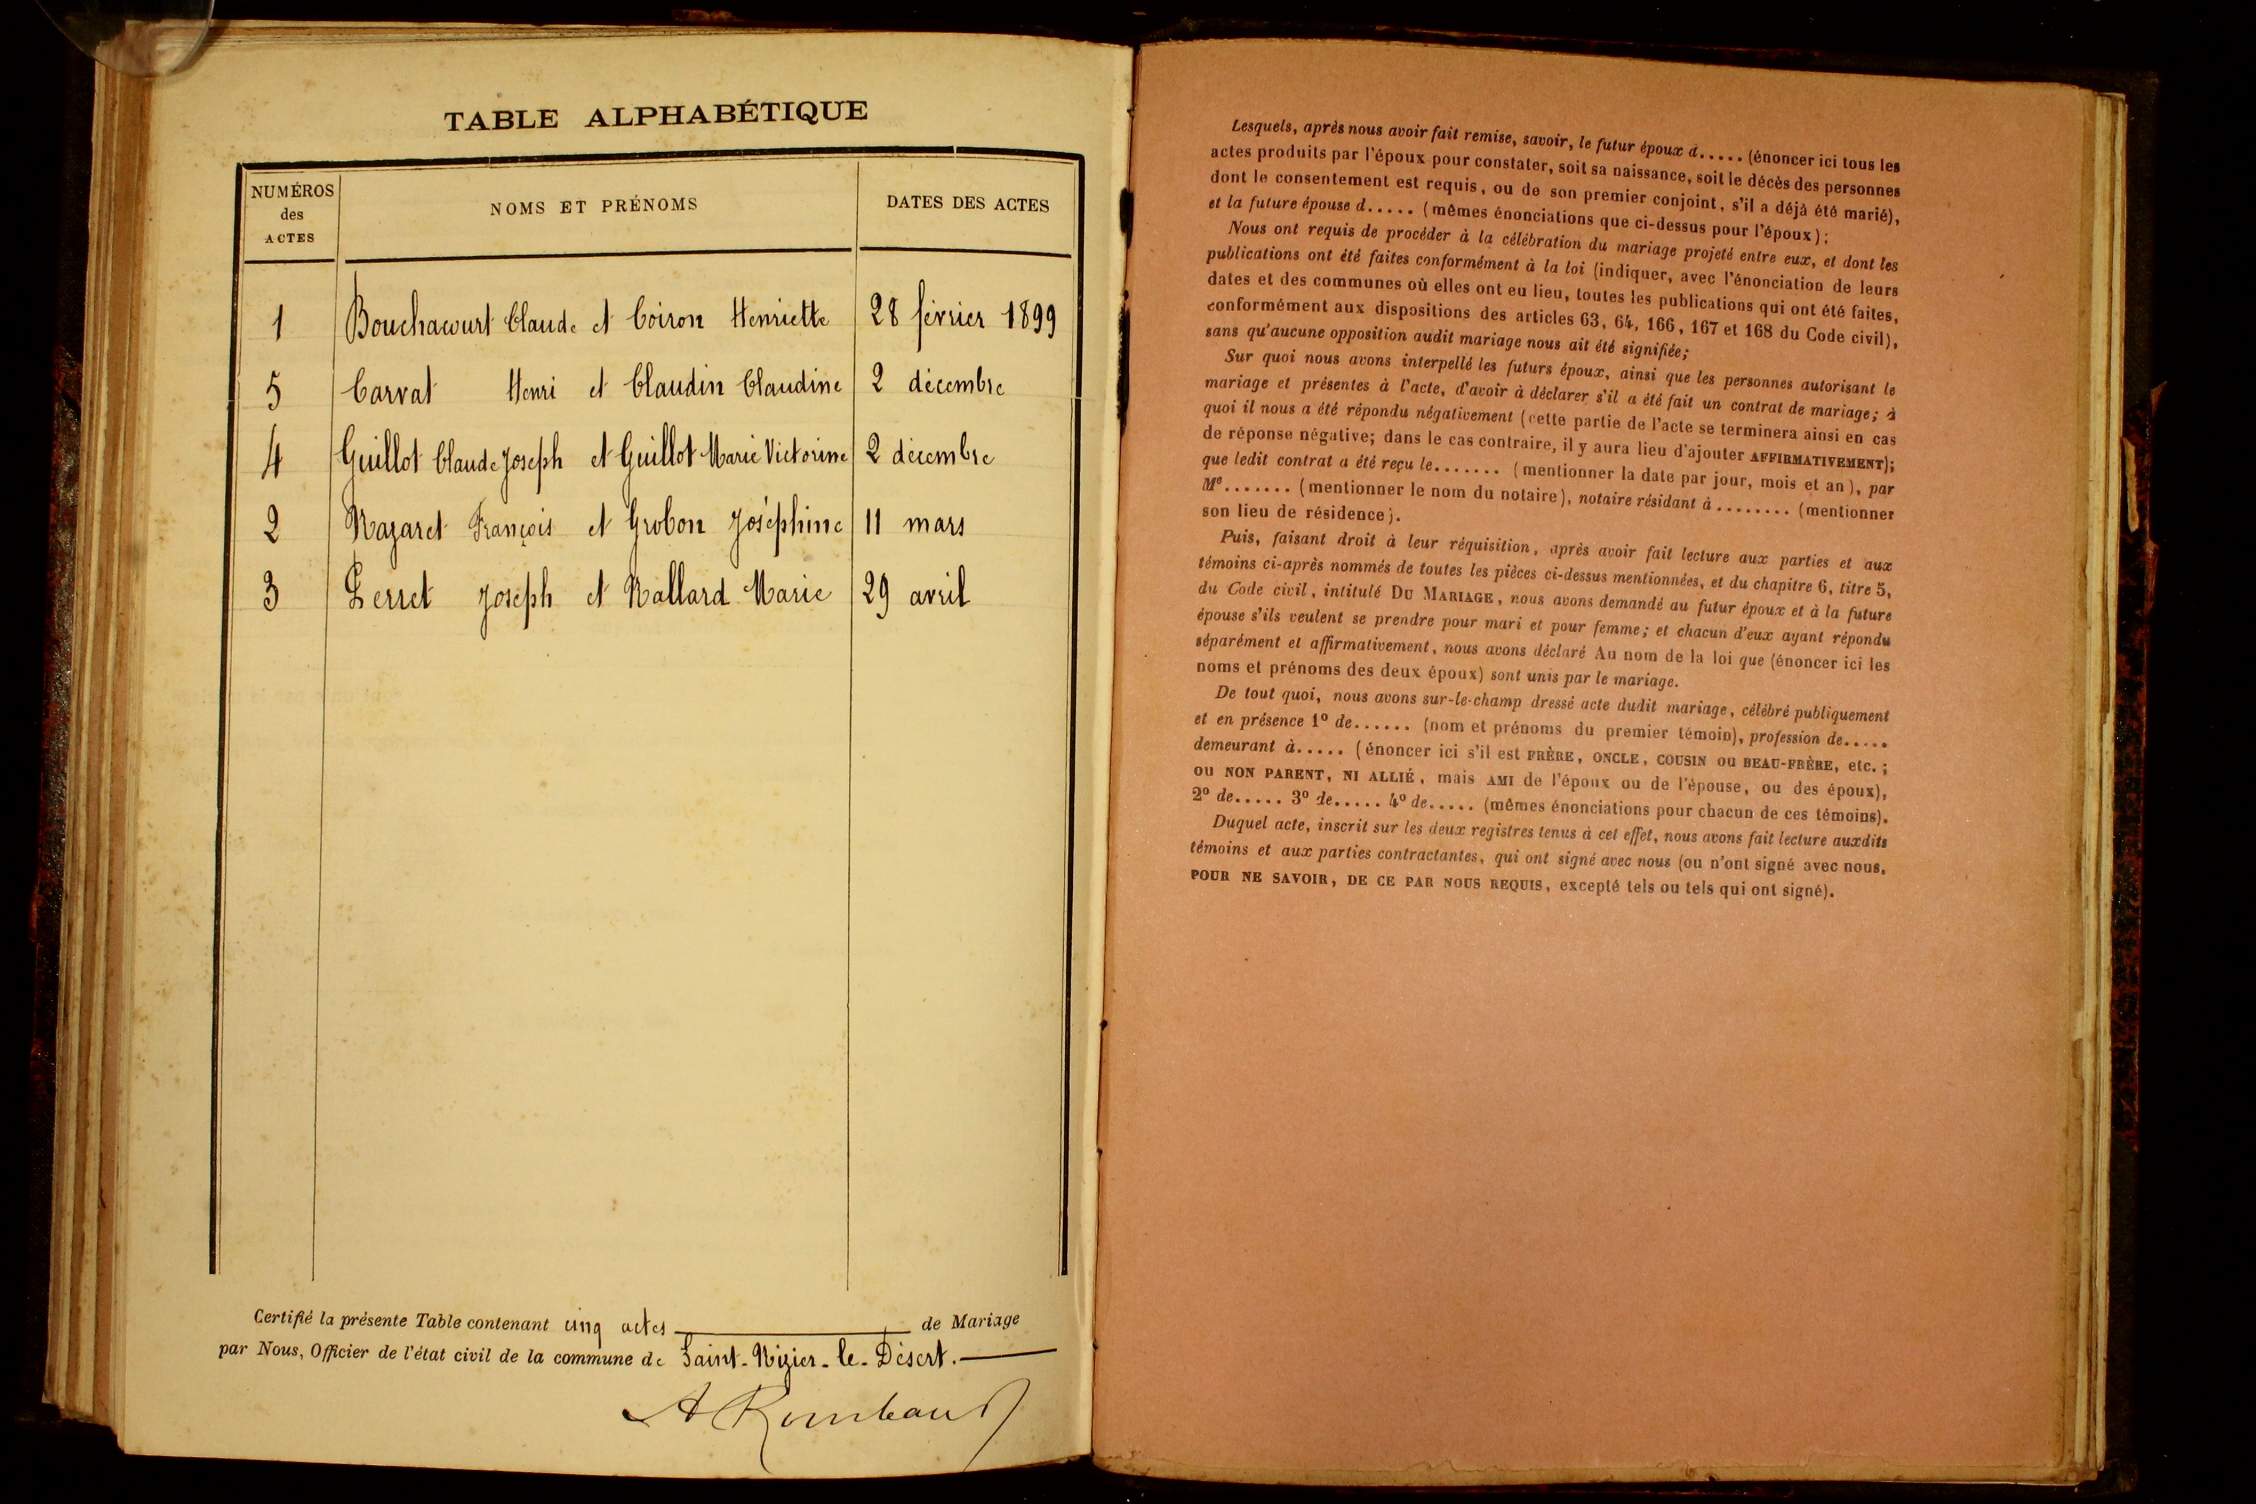 TABLE ALPHABÉTIQUE
NUMÉROS des ACTES
NOMS ET PRÉNOMS
DATES DES ACTES
1 Bouchacourt Claude et Coiron Henriette 28 février 1899
5 Carvat Henri et Claudin Claudine 2 décembre
4 Guillot Claude Joseph et Guillot Marie Victorine 2 décembre
2 Nazaret François et Grobon Joséphine 11 mars
3 Perret Joseph et Nallard Marie 29 avril
Certifié la présente Table contenant cinq actes de Mariage
par Nous, Officier de l'état civil de la commune de Saint-Nizier-le-Désert.
Lesquels, après nous avoir fait remise, savoir, le futur époux d..... (énoncer ici tous les
actes produits par l'époux pour constater, soit sa naissance, soit le décès des personnes
dont le consentement est requis, ou de son premier conjoint, s'il a déjà été marié),
et la future épouse d..... (mêmes énonciations que ci-dessus pour l'époux);
Nous ont requis de procéder à la célébration du mariage projeté entre eux, et dont les
publications ont été faites conformément à la loi (indiquer, avec l'énonciation de leurs
dates et des communes où elles ont eu lieu, toutes les publications qui ont été faites,
conformément aux dispositions des articles 63, 64, 166, 167 et 168 du Code civil),
sans qu'aucune opposition audit mariage nous ait été signifiée;
Sur quoi nous avons interpellé les futurs époux, ainsi que les personnes autorisant le
mariage et présentes à l'acte, d'avoir à déclarer s'il a été fait un contrat de mariage; à
quoi il nous a été répondu négativement (cette partie de l'acte se terminera ainsi en cas
de réponse négative; dans le cas contraire, il y aura lieu d'ajouter AFFIRMATIVEMENT);
que ledit contrat a été reçu le....... (mentionner la date par jour, mois et an), par
Me....... (mentionner le nom du notaire), notaire résidant à ........ (mentionner
son lieu de résidence).
Puis, faisant droit à leur réquisition, après avoir fait lecture aux parties et aux
témoins ci-après nommés de toutes les pièces ci-dessus mentionnées, et du chapitre 6, titre 5,
du Code civil, intitulé DU MARIAGE, nous avons demandé au futur époux et à la future
épouse s'ils veulent se prendre pour mari et pour femme; et chacun d'eux ayant répondu
séparément et affirmativement, nous avons déclaré Au nom de la loi que (énoncer ici les
noms et prénoms des deux époux) sont unis par le mariage.
De tout quoi, nous avons sur-le-champ dressé acte dudit mariage, célébré publiquement
et en présence 1º de...... (nom et prénoms du premier témoin), profession de.....
demeurant à..... (énoncer ici s'il est FRÈRE, ONCLE, COUSIN OU BEAU-FRÈRE, etc.;
OU NON PARENT, NI ALLIÉ, mais AMI de l'époux ou de l'épouse, ou des époux),
2º de..... 3º de..... 4º de..... (mêmes énonciations pour chacun de ces témoins).
Duquel acte, inscrit sur les deux registres tenus à cet effet, nous avons fait lecture auxdits
témoins et aux parties contractantes, qui ont signé avec nous (ou n'ont signé avec nous,
POUR NE SAVOIR, DE CE PAR NOUS REQUIS, excepté tels ou tels qui ont signé).